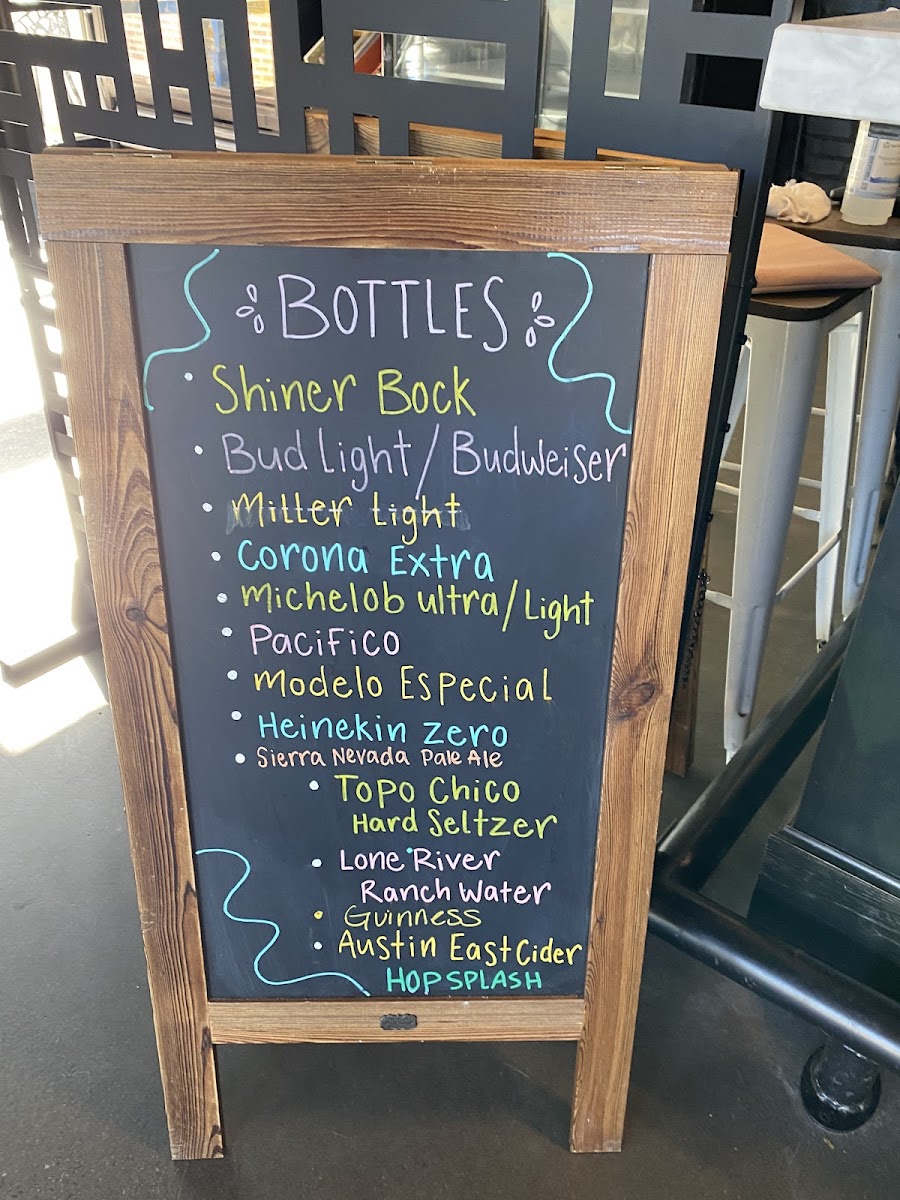 BOTTLES
• Shiner Bock
• Bud Light/Budweiser
• Miller Light
• Corona Extra
• Michelob ultra/Light
• Pacifico
• Modelo Especial
• Heinekin Zero
• Sierra Nevada Pale Ale
• Topo Chico
Hard Seltzer
• Lone River
Ranch Water
• Guinness
• Austin East Cider
HOP SPLASH